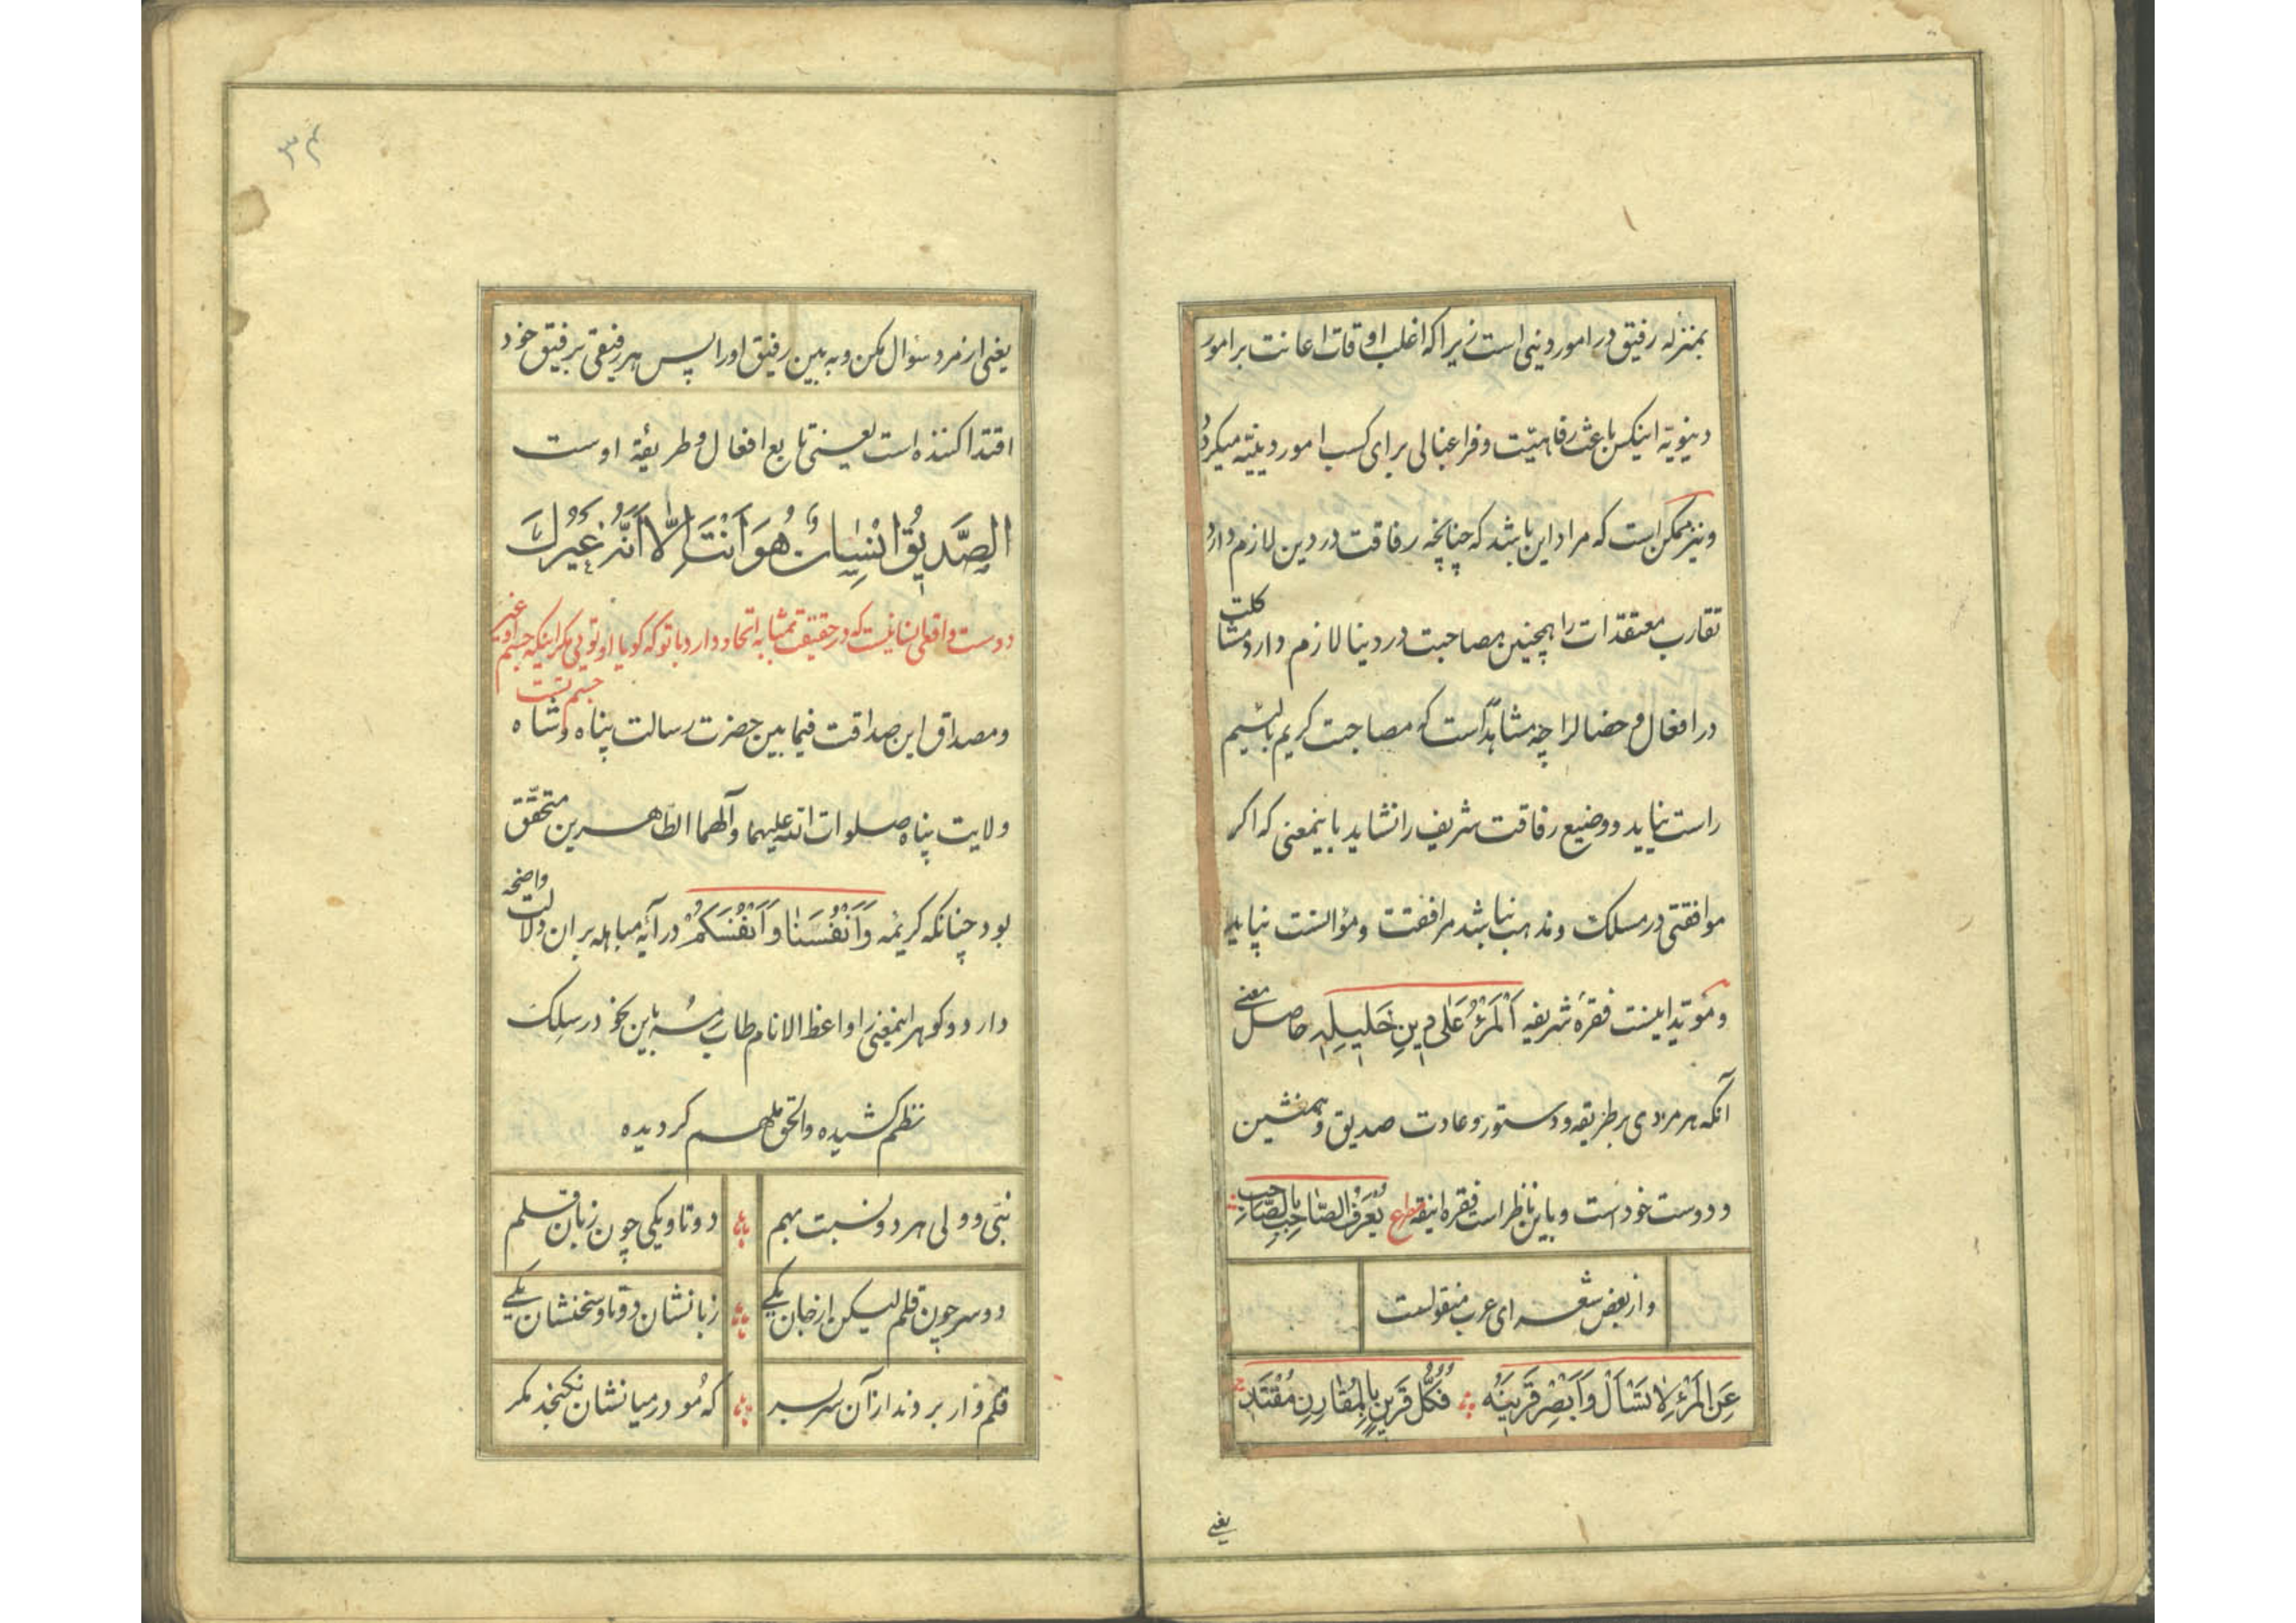 بمنزله رفیق در امور دینی است زیرا که اغلب اوقات اعانت بر امور
دنیویة اینکس باعث رفاهیّت و فراغبالی برای کسب امور دینیّه میکردد
و نیز ممکن است که مراد این باشد که چنانچه رفاقت در دین لازم دارد
تقارب معتقدات را همچنین مصاحبت در دنیا لازم دارد مشاکلت
در افعال و خصال را چه مشاهد است که مصاحبت کریم با لئیم
راست نیاید و وضیع رفاقت شریف را نشاید باینمعنی که اکر
موافقتی در مسلک و مذهب نباشد مرافقت و مؤالنست نپاید
و مؤیّد اینست فقرهٔ شریفه اَلمَرْءُ عَلی دِینِ خَلیلِهِ حاصل معنی
آنکه هر مردی بر طریقه و دستور و عادت صدیق و همنشین
و دوست خود است و باین ناظر است فقره انیقه یُعْرَفُ الصّاحِبُ بِالصّاحِبِ
و از بعض شعرای عرب منقولست
عَنِ المَرْءِ لا تَسْاَلْ وَ اَبْصِرْ قَرینَهُ فَکُلُّ قَرینٍ بِالمُقارِنِ مُقْتَدٍ
یعنی
۳۴
یعنی از مرد سؤال مکن و به بین رفیق او را پس هر رفیقی برفیق خود
اقتدا کننده است یعنی تابع افعال و طریقهٔ اوست
الصَّدیقُ اِنْسانٌ هُوَ اَنْتَ اِلّا اَنَّهُ غَیْرُكَ
دوست واقعی انسانیست که در حقیقت بمثابه اتحاد دارد با تو که کویا او تویی مکر اینکه جسم او غیر
جسم تست
و مصداق این صداقت فیما بین حضرت رسالت پناه و شاه
ولایت پناه صلوات الله علیهما و آلهما الطاهرین متحقّق
بود چنانکه کریمه وَ اَنْفُسَنا وَ اَنْفُسَکُمْ در آیهٔ مباهله بران دلالت واضحه
دارد و کوهر اینمعنی را واعظ الانام طاب رمسه باین نحو در سلک
نظم کشیده و الحق ملهم کردیده
نبیّ و ولی هر دو نسبت بهم دو تا و یکی چون زبان قلم
دو سر چون قلم لیکن از جان یکی زبانشان دو تا و سخنشان یکی
قلم وار بردند از آن سر بسر که مو در میانشان نکنجد مکر